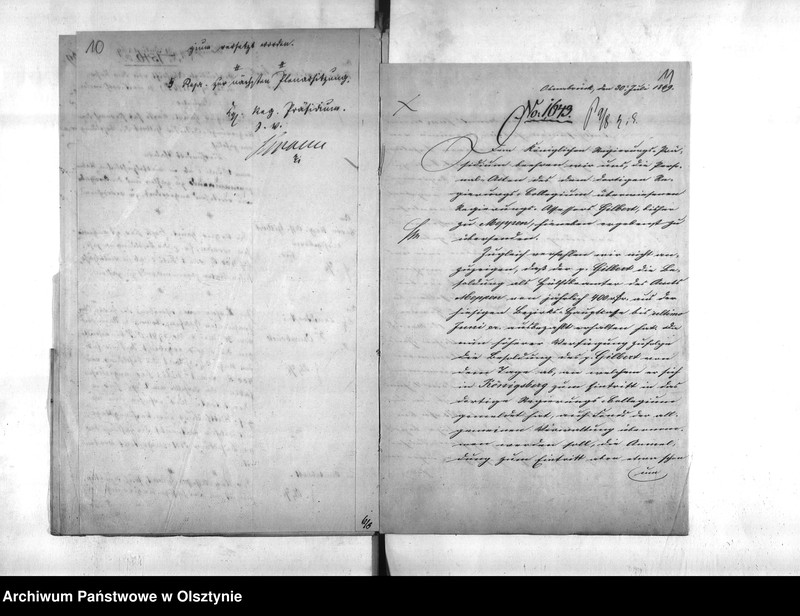 10
zum versetzt worden.
§ Repr. zur nächsten Plenarsitzung.
Kgl. Reg. Präsidium.
J. V.
6/8
11
Osnabrück, den 30. Juli 1869.
No. 1643.
Dem Königlichen Regierungs-Prä-
sidium beehren wir uns, die Perso-
nal-Acten des dem dortigen Re-
gierungs-Collegium überwiesenen
Regierungs-Assessors Gilbert, bisher
zu Meppen, hierneben ergebenst zu
übersenden.
Zugleich verfehlen wir nicht an-
zuzeigen, daß der p. Gilbert die Be-
soldung als Hülfsbeamter des Amts
Meppen von jährlich 400 rthr. aus der
hiesigen Bezirks-Hauptcasse bis ultimo
Juni cr. ausbezahlt erhalten hat. Da
nun höherer Verfügung zufolge
die Besoldung des p. Gilbert von
dem Tage ab, an welchem er sich
in Königsberg zum Eintritt in das
dortige Regierungs-Collegium
gemeldet hat, auf Fonds der all-
gemeinen Verwaltung übernom-
men werden soll, die Anmel-
dung zum Eintritt aber etwa schon
am
Archiwum Państwowe w Olsztynie